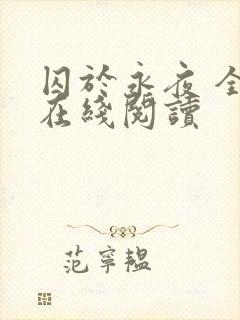 囚於永夜 全
在綫閱讀
范寧韞